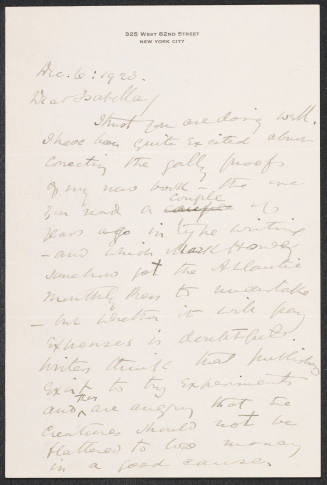 325 West 82nd Street
New York City
Dec. 6: 1923.
Dear Isabella/
I trust you are doing well.
I have been quite excited about
correcting the gally proofs
of my new book – the one
you read a couple of
years ago in type writing
– and which Mark Howe
somehow got the Atlantic
Monthly Press to undertake
– but whether it will pay
expenses is doubtful.
Writers think that publishers
exist to try experiments
and then are angry that the
creatures should not be
flattered to lose money
in a good cause.